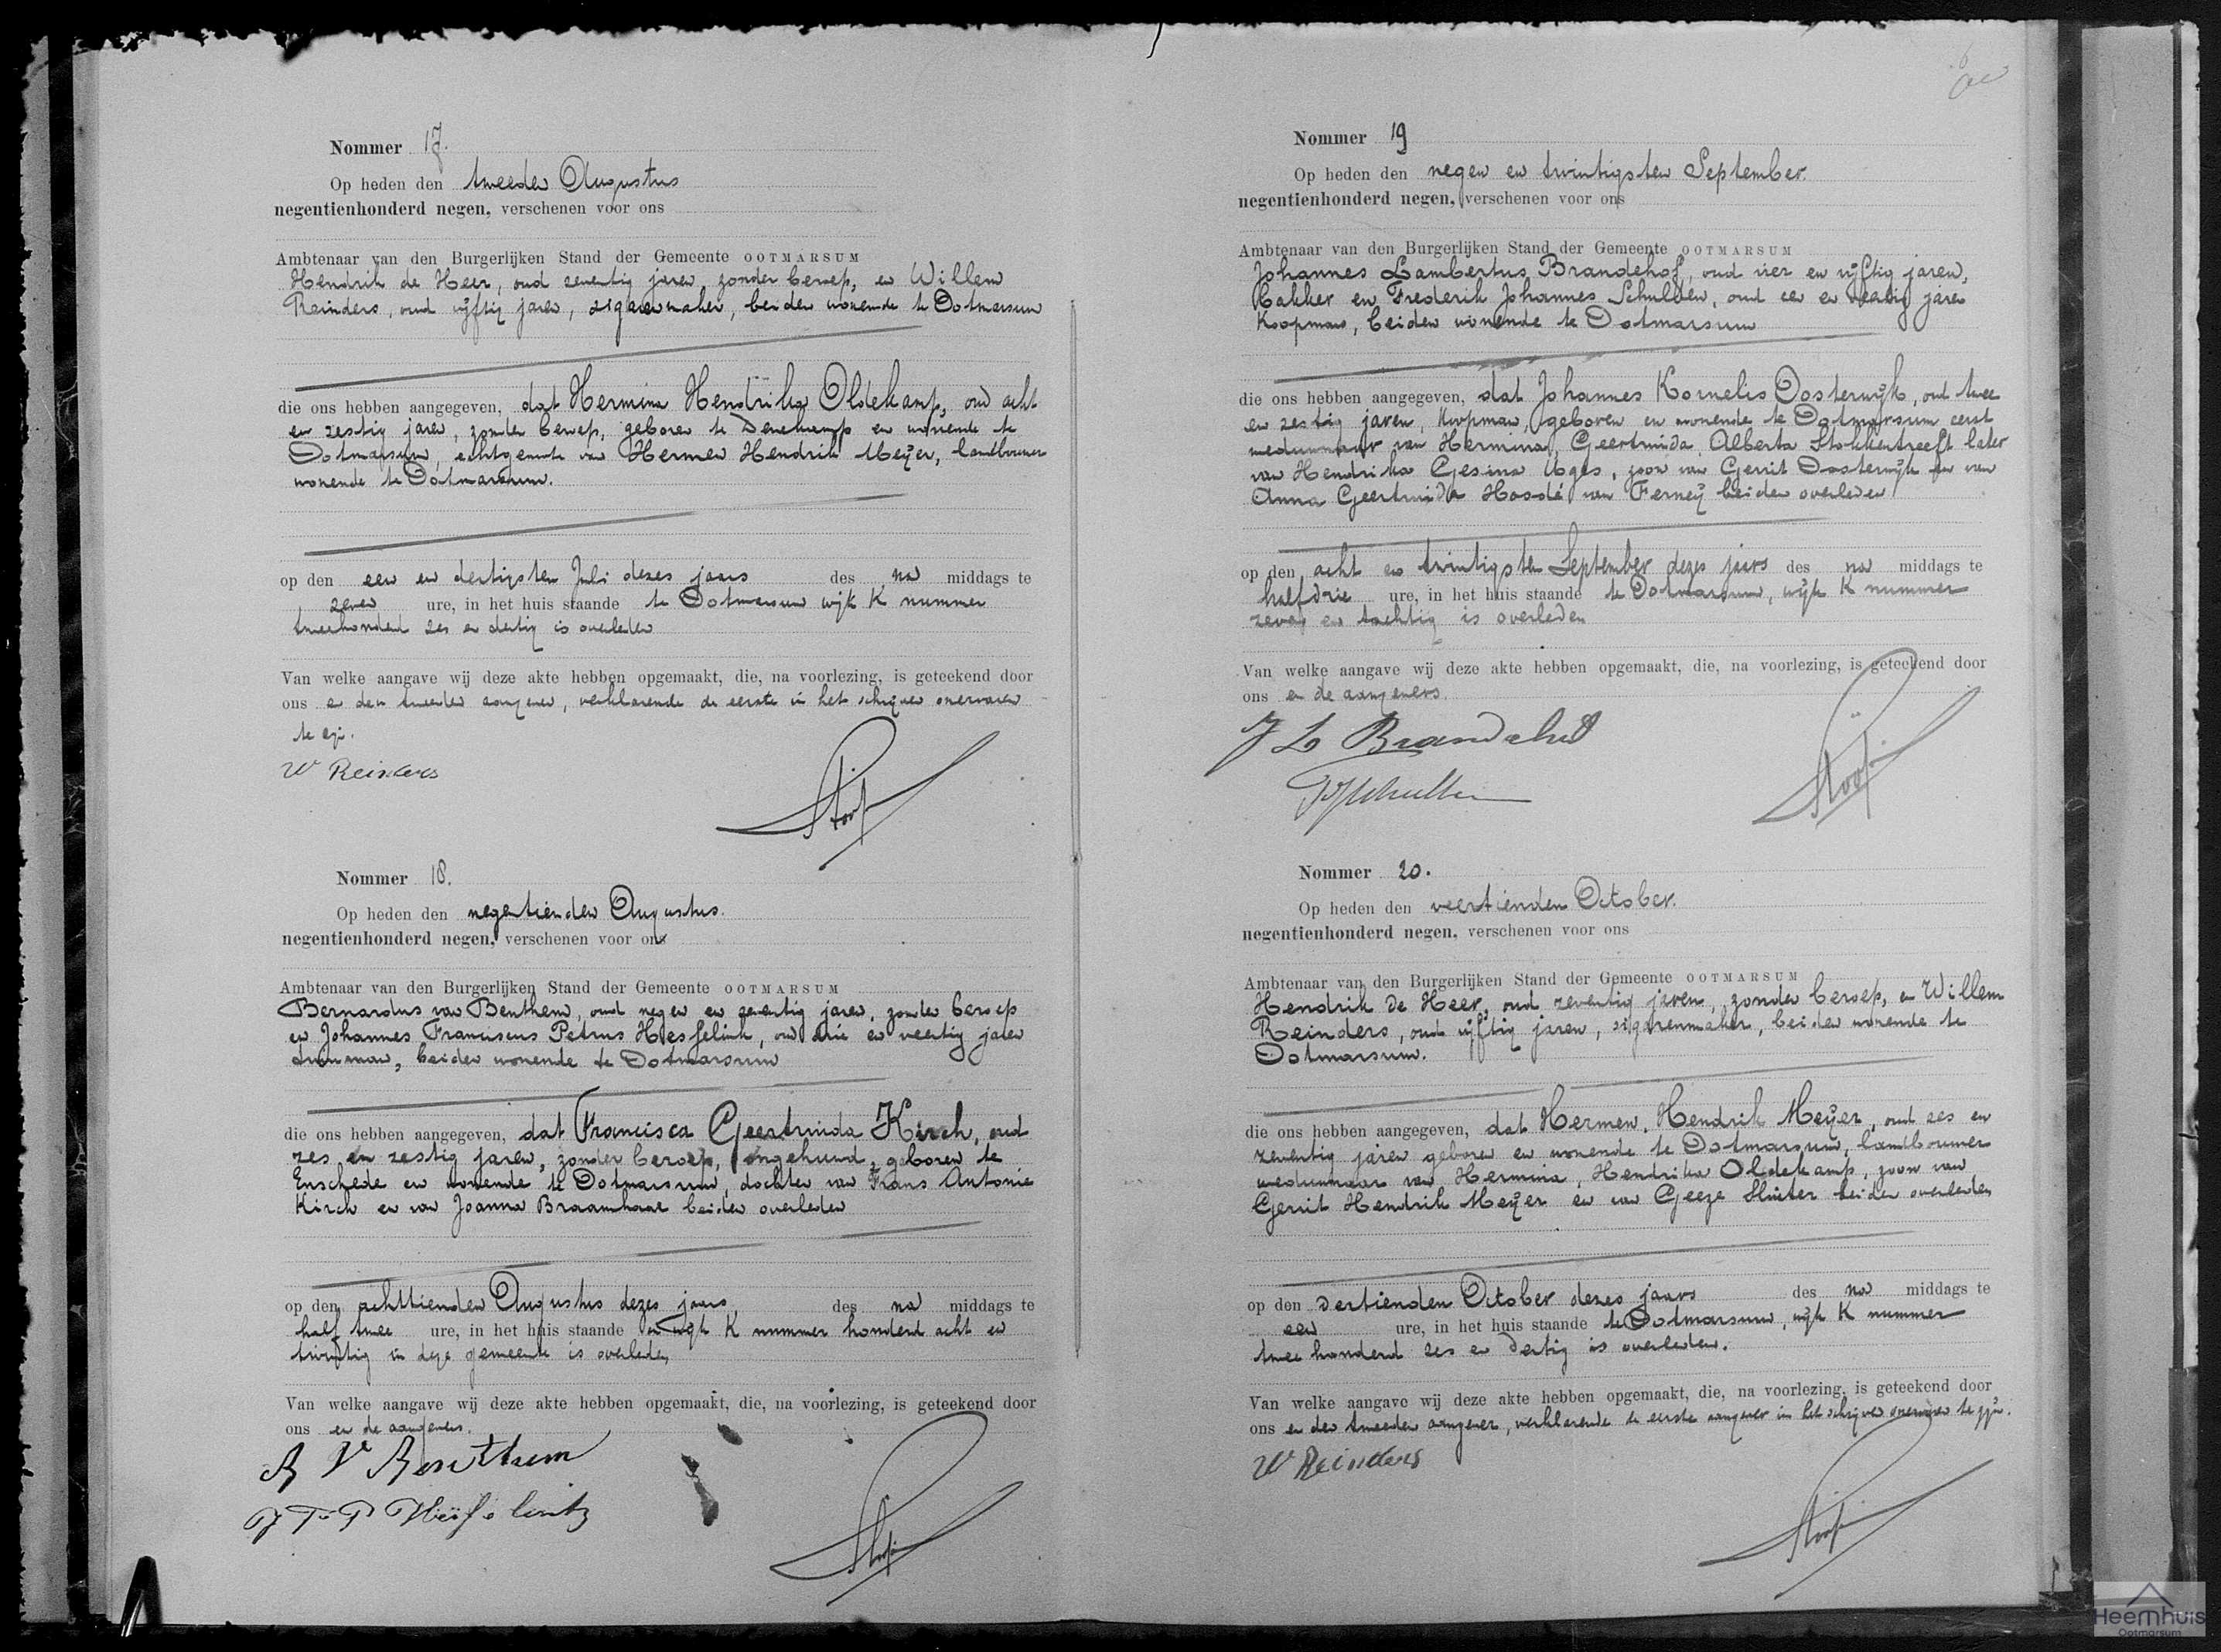 Nommer 17.
Op heden den tweeden Augustus
negentienhonderd negen, verschenen voor ons
Ambtenaar van den Burgerlijken Stand der Gemeente OOTMARSUM
Hendrik de Heer, oud zeventig jaren, zonder beroep, en Willem
Reinders, oud vijftig jaren, sigarenmaker, beiden wonende te Ootmarsum
die ons hebben aangegeven, dat Hermina Hendrika Oldekamp, oud acht
en zestig jaren, zonder beroep, geboren te Denekamp en wonende te
Ootmarsum, echtgenoote van Hermen Hendrik Meijer, landbouwer
wonende te Ootmarsum.
op den een en dertigsten Juli dezes jaars des na middags te
zeven ure, in het huis staande te Ootmarsum wijk K nummer
tweehonderd zes en dertig is overleden
Van welke aangave wij deze akte hebben opgemaakt, die, na voorlezing, is geteekend door
ons en den tweeden aangever, verklarende de eerste in het schrijven onervaren
te zijn.
W Reinders
Nommer 18.
Op heden den negentienden Augustus.
negentienhonderd negen, verschenen voor ons
Ambtenaar van den Burgerlijken Stand der Gemeente OOTMARSUM
Bernardus van Benthem, oud negen en zeventig jaren, zonder beroep
en Johannes Franciscus Petrus Hesselink, oud drie en veertig jaren
, beiden wonende te Ootmarsum
die ons hebben aangegeven, dat Francisca Geertruida Kirch, oud
zes en zestig jaren, zonder beroep, ongehuwd, geboren te
Enschede en wonende te Ootmarsum, dochter van Frans Antonie
Kirch en van Joanna Braamhaar beiden overleden
op den achttienden Augustus dezes jaars, des na middags te
half twee ure, in het huis staande in wijk K nummer honderd acht en
twintig in deze gemeente is overleden
Van welke aangave wij deze akte hebben opgemaakt, die, na voorlezing, is geteekend door
ons en de aangevers.
B V Benthem
J F P Hesselink
Nommer 19
Op heden den negen en twintigsten September.
negentienhonderd negen, verschenen voor ons
Ambtenaar van den Burgerlijken Stand der Gemeente OOTMARSUM
Johannes Lambertus Brandehof, oud vier en vijftig jaren,
bakker en Frederik Johannes Schulten, oud een en veertig jaren
Koopman, beiden wonende te Ootmarsum
die ons hebben aangegeven, dat Johannes Kornelis Oosterwijk, oud twee
en zestig jaren, koopman, geboren en wonende te Ootmarsum eerst
weduwnaar van Hermina Geertruida Alberta Stokkentreeft later
van Hendrika Gesina Ages, zoon van Gerrit Oosterwijk en van
Anna Geertruida Hosdé van Ferneij beiden overleden
op den acht en twintigsten September dezes jaars des na middags te
half drie ure, in het huis staande te Ootmarsum, wijk K nummer
zeven en tachtig is overleden
Van welke aangave wij deze akte hebben opgemaakt, die, na voorlezing, is geteekend door
ons en de aangevers.
J L Brandehof
FJSchulten
Nommer 20.
Op heden den veertienden October.
negentienhonderd negen, verschenen voor ons
Ambtenaar van den Burgerlijken Stand der Gemeente OOTMARSUM
Hendrik de Heer, oud zeventig jaren, zonder beroep, en Willem
Reinders, oud vijftig jaren, sigarenmaker, beiden wonende te
Ootmarsum.
die ons hebben aangegeven, dat Hermen, Hendrik Meijer, oud zes en
zeventig jaren geboren en wonende te Ootmarsum, landbouwer
weduwnaar van Hermina, Hendrika Oldekamp, zoon van
Gerrit Hendrik Meijer en van Geeze Sluiter beiden overleden
op den dertienden October dezes jaars des na middags te
een ure, in het huis staande te Ootmarsum, wijk K nummer
twee honderd zes en dertig is overleden.
Van welke aangave wij deze akte hebben opgemaakt, die, na voorlezing, is geteekend door
ons en den tweeden aangever, verklarende de eerste aangever in het schrijven onervaren te zijn.
W Reinders
Heemhuis
Ootmarsum